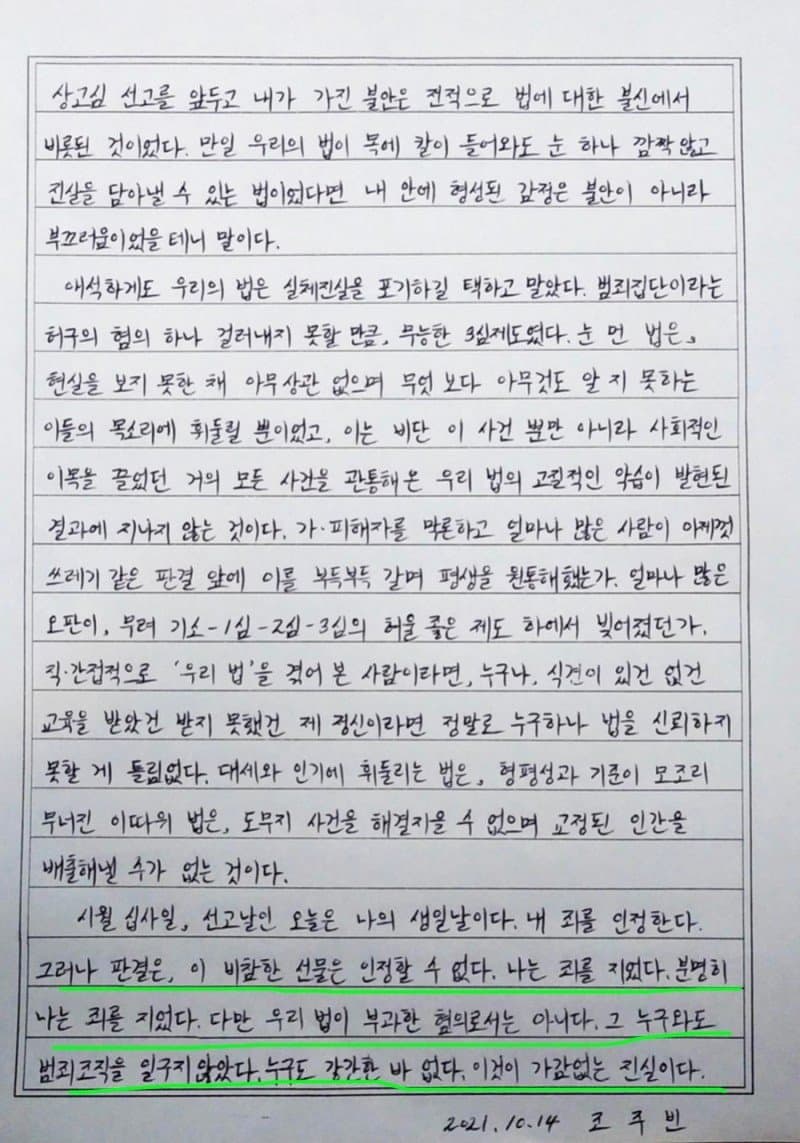 상고심 선고를 앞두고 내가 가진 불안은 전적으로 법에 대한 불신에서
비롯된 것이었다. 만일 우리의 법이 목에 칼이 들어와도 눈 하나 깜짝 않고
진실을 담아낼 수 있는 법이었다면 내 안에 형성된 감정은 불안이 아니라
부끄러움이었을 테니 말이다.
애석하게도 우리의 법은 실체진실을 포기하길 택하고 말았다. 범죄집단이라는
허구의 혐의 하나 걸러내지 못할 만큼, 무능한 3심제도였다. 눈 먼 법은,
현실을 보지 못한 채 아무상관 없으며 무엇 보다 아무것도 알 지 못하는
이들의 목소리에 휘둘릴 뿐이었고, 이는 비단 이 사건 뿐만 아니라 사회적인
이목을 끌었던 거의 모든 사건을 관통해온 우리 법의 고질적인 악습이 발현된
결과에 지나지 않는 것이다. 가·피해자를 막론하고 얼마나 많은 사람이 이제껏
쓰레기 같은 판결 앞에 이를 부득부득 갈며 평생을 원통해했는가. 얼마나 많은
오판이, 무려 기소-1심-2심-3심의 허울 좋은 제도 하에서 빚어졌던가.
직·간접적으로 '우리 법'을 겪어 본 사람이라면, 누구나, 식견이 있건 없건
교육을 받았건 받지 못했건 제 정신이라면 정말로 누구하나 법을 신뢰하지
못할 게 틀림없다. 대세와 인기에 휘둘리는 법은, 형평성과 기준이 모조리
무너진 이따위 법은, 도무지 사건을 해결지을 수 없으며 교정된 인간을
배출해낼 수가 없는 것이다.
시월 십사일, 선고날인 오늘은 나의 생일날이다. 내 죄를 인정한다.
그러나 판결은, 이 비참한 선물은 인정할 수 없다. 나는 죄를 지었다. 분명히
나는 죄를 지었다. 다만 우리 법이 부과한 혐의로서는 아니다. 그 누구와도
범죄조직을 일구지 않았다. 누구도 강간한 바 없다. 이것이 가감없는 진실이다.
2021. 10. 14 조 주 빈